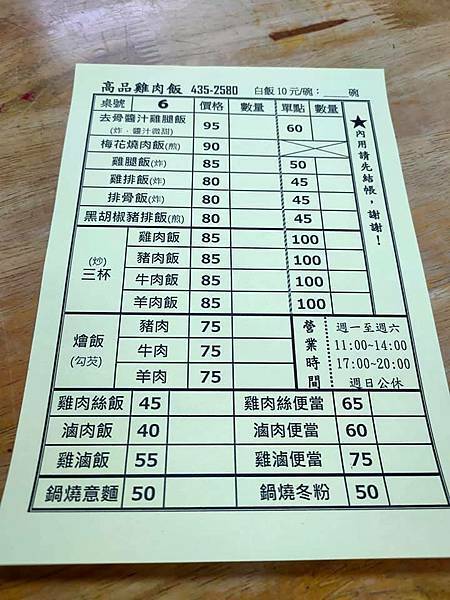 高品雞肉飯 435-2580 白飯10元/碗：____碗
桌號 6 價格 數量 單點 數量
去骨醬汁雞腿飯 95 60
(炸、醬汁微甜)
梅花燒肉飯(煎) 90
雞腿飯(炸) 85 50
雞排飯(炸) 80 45
排骨飯(炸) 80 45
黑胡椒豬排飯(煎) 80 45
★內用請先結帳，謝謝！
(炒)
三杯
雞肉飯 85 100
豬肉飯 85 100
牛肉飯 85 100
羊肉飯 85 100
燴飯
(勾芡)
豬肉 75
牛肉 75
羊肉 75
營業時間
週一至週六
11:00~14:00
17:00~20:00
週日公休
雞肉絲飯 45 雞肉絲便當 65
滷肉飯 40 滷肉便當 60
雞滷飯 55 雞滷便當 75
鍋燒意麵 50 鍋燒冬粉 50